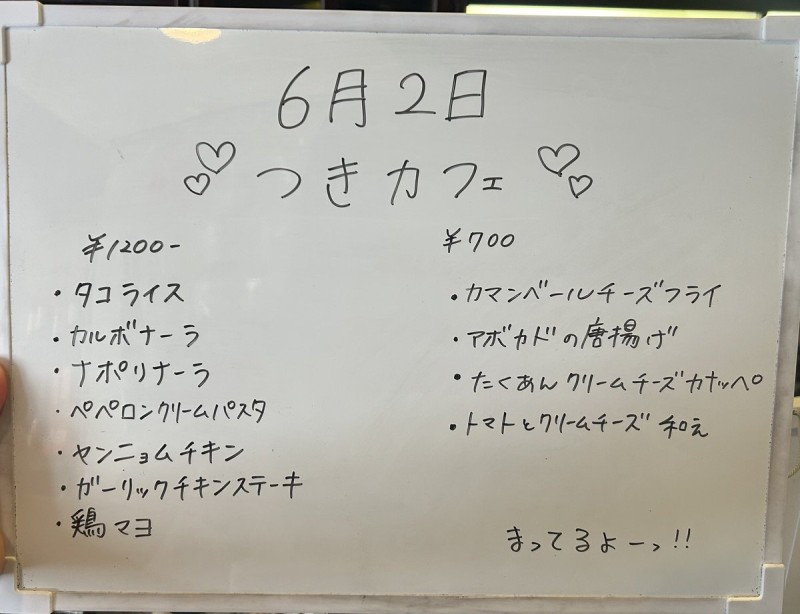 6月2日
つきカフェ
¥1200-
・タコライス
・カルボナーラ
・ナポリナーラ
・ペペロンクリームパスタ
・ヤンニョムチキン
・ガーリックチキンステーキ
・鶏マヨ
¥700
・カマンベールチーズフライ
・アボカドの唐揚げ
・たくあんクリームチーズカナッペ
・トマトとクリームチーズ和え
まってるよーっ!!